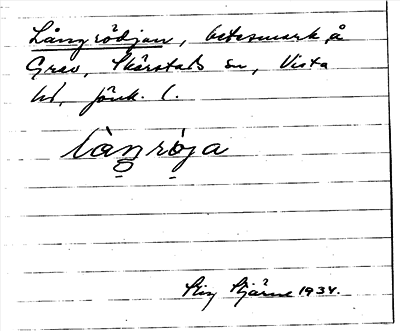 Långrödjan, betesmark å
Grev, Skärstads sn, Vista
hd, Jönk. l.
làŋrøja
Stig Stjärne 1934.